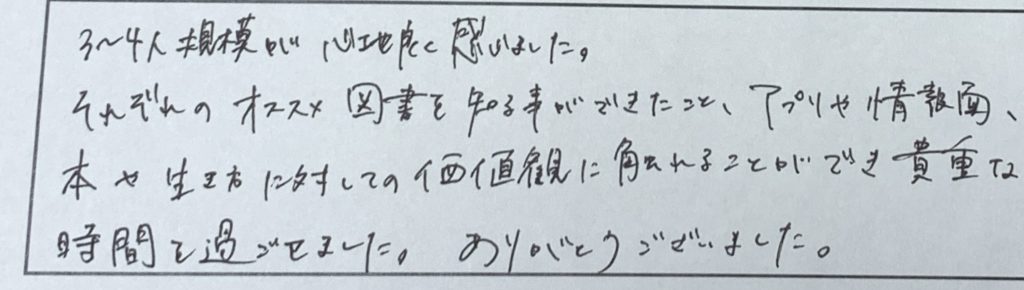 3〜4人規模が心地良く感じました。
それぞれのオススメ図書を知る事ができたこと、アプリや情報面、
本や生き方に対しての価値観に触れることができ貴重な
時間を過ごせました。ありがとうございました。